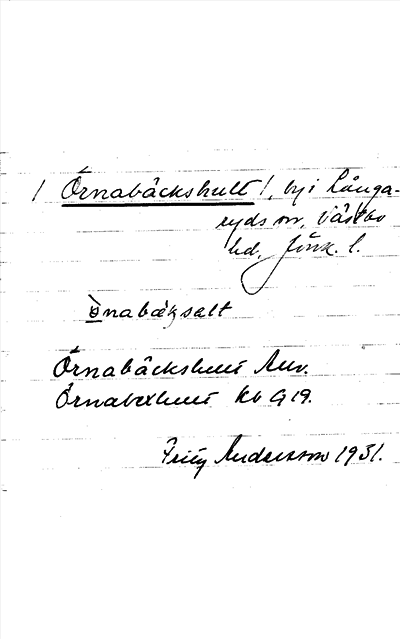 / Örnabäckshult /, by i Långa-
ryds sn, Västbo
hd, Jönk. l.
ònabæksalt
Örnabäckshult Auv.
Örnabexhult kb G 19.
Fritz Andersson 1931.